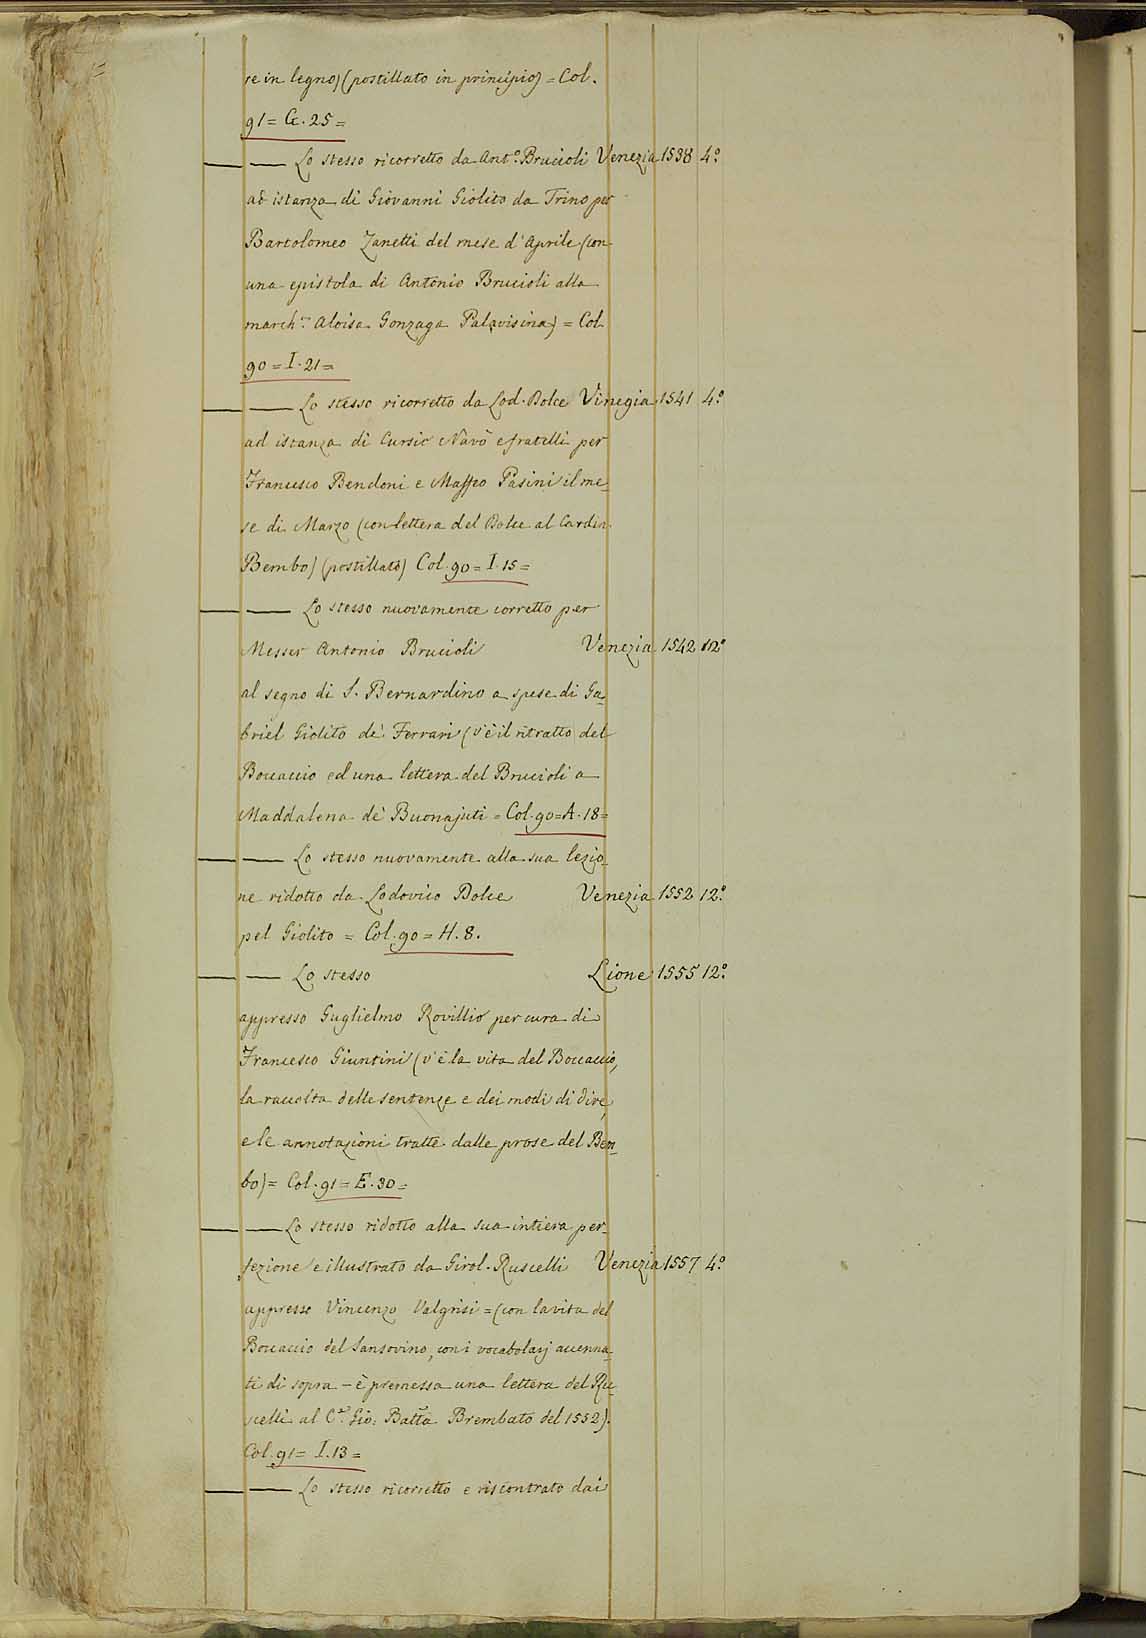 se in legno) (postillato in principio) = Col.
91 = G. 25 =
— — Lo stesso ricorretto da Ant.º Brucioli Venezia 1538 4.º
ad istanza di Giovanni Giolito da Trino per
Bartolomeo Zanetti del mese d'Aprile (con
una epistola di Antonio Brucioli alla
march.ª Aloisa Gonzaga Palavisina) = Col.
90 = I. 21 =
— — Lo stesso ricorretto da Lod. Dolce Vinegia 1541 4.º
ad istanza di Cursio Navò e fratelli per
Francesco Bendoni e Maffeo Pasini il me_
se di Marzo (con lettera del Dolce al Cardin.
Bembo) (postillato) Col. 90 = I. 15 =
— — Lo stesso nuovamente corretto per
Messer Antonio Brucioli Venezia 1542 12.º
al segno di S. Bernardino a spese di Ga_
briel Giolito de' Ferrari (v'è il ritratto del
Boccaccio ed una lettera del Brucioli a
Maddalena de' Buonajuti = Col. 90 = A. 18 =
— — Lo stesso nuovamente alla sua lezio_
ne ridotto da Lodovico Dolce Venezia 1552 12.º
pel Giolito = Col. 90 = H. 8.
— — Lo stesso Lione 1555 12.º
appresso Guglielmo Rovillio per cura di
Francesco Giuntini (v'è la vita del Boccaccio,
la raccolta delle sentenze e dei modi di dire,
e le annotazioni tratte dalle prose del Bem_
bo) = Col. 91 = E. 30 =
— — Lo stesso ridotto alla sua intiera per_
fezione e illustrato da Girol. Ruscelli Venezia 1557 4.º
appresso Vincenzo Valgrisi = (con la vita del
Boccaccio del Sansovino, con i vocabolarj accenna_
ti di sopra – è premessa una lettera del Ru_
scelli al C.ª Gio: Batta Brembato del 1552).
Col. 91 = I. 13 =
— — Lo stesso ricorretto e riscontrato dai